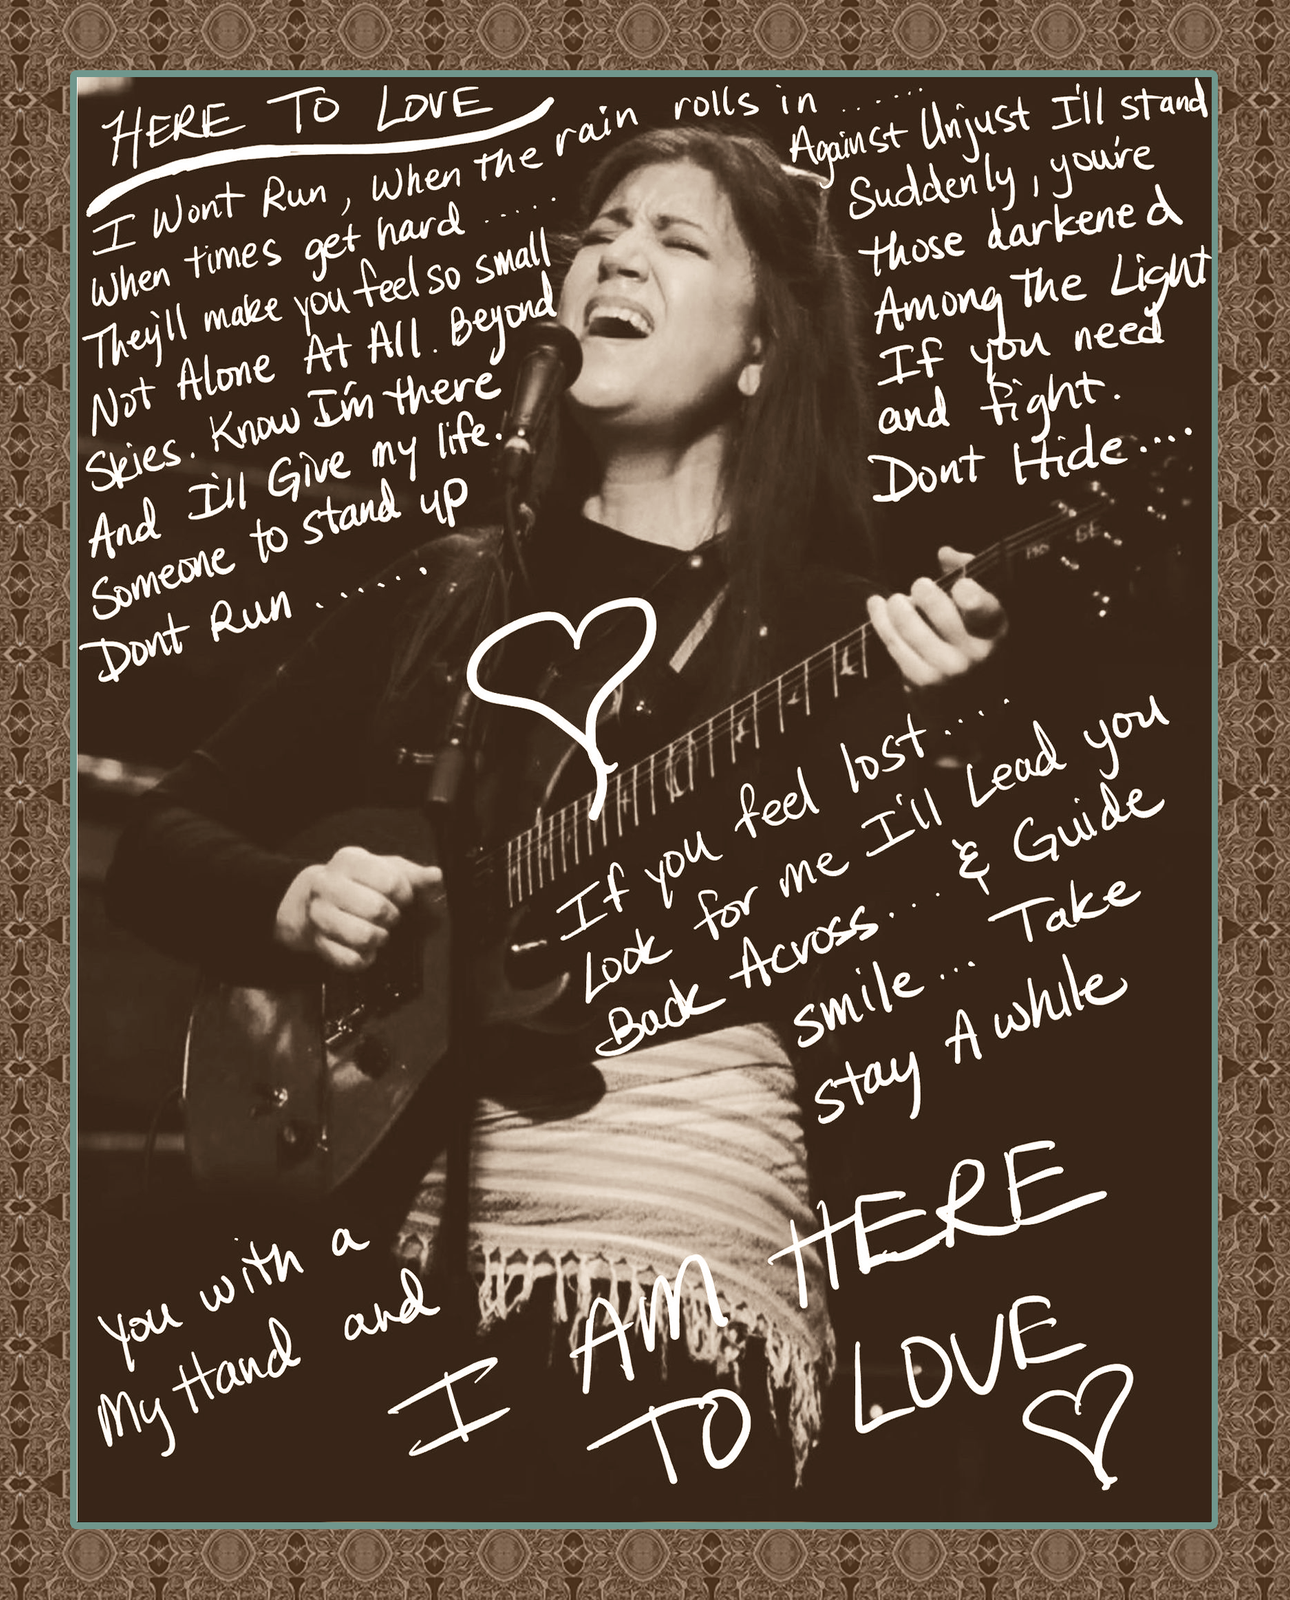 HERE TO LOVE
I Wont Run, When the rain rolls in ......
When times get hard ...... Against Unjust I'll stand
They'll make you feel so small Suddenly, you're
Not Alone At All. Beyond those darkened
Skies. Know I'm there Among the Light
And I'll Give my life. If you need
Someone to stand up and fight.
Dont Run ...... Dont Hide....
If you feel lost.....
Look for me I'll Lead you
Back Across.... & Guide
You with a smile... Take
My Hand and stay A while
I AM HERE
TO LOVE